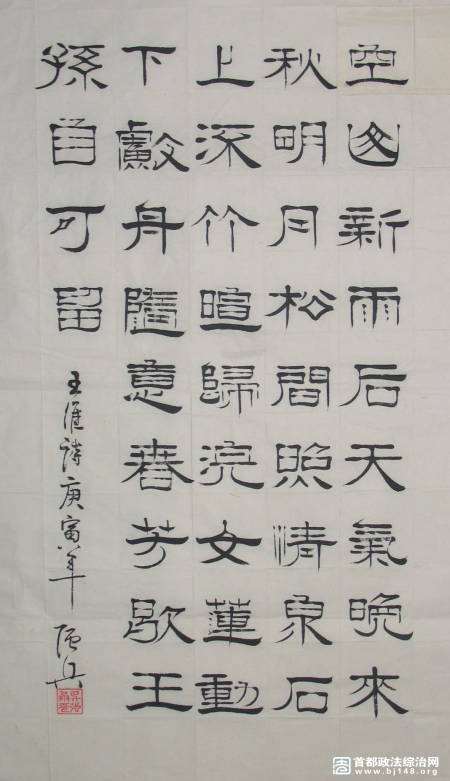 空山新雨后天氣晚來
秋明月松間照清泉石
上流竹暄歸浣女蓮動
下漁舟隨意春芳歇王
孫自可留
王維詩庚寅年
首都政法综治网
www.bj148.org